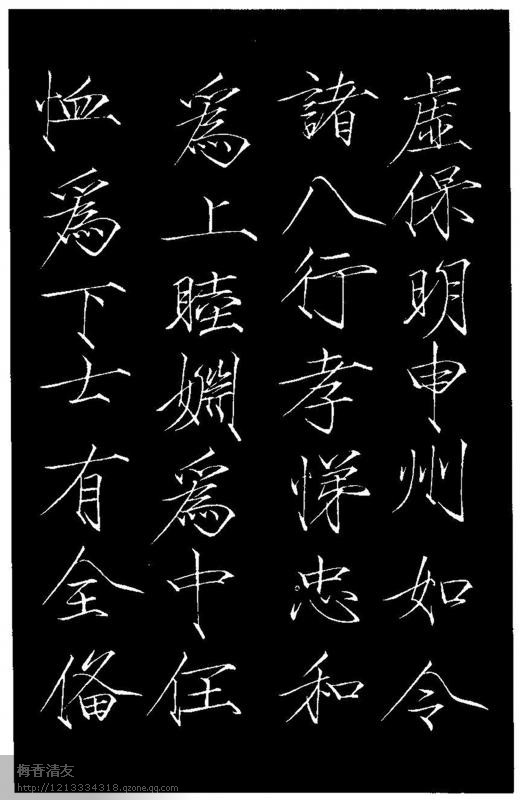 虛保明申州如令
諸八行孝悌忠和
為上睦婣為中任
恤為下士有全備
梅香清友
http://1213334318.qzone.qq.com